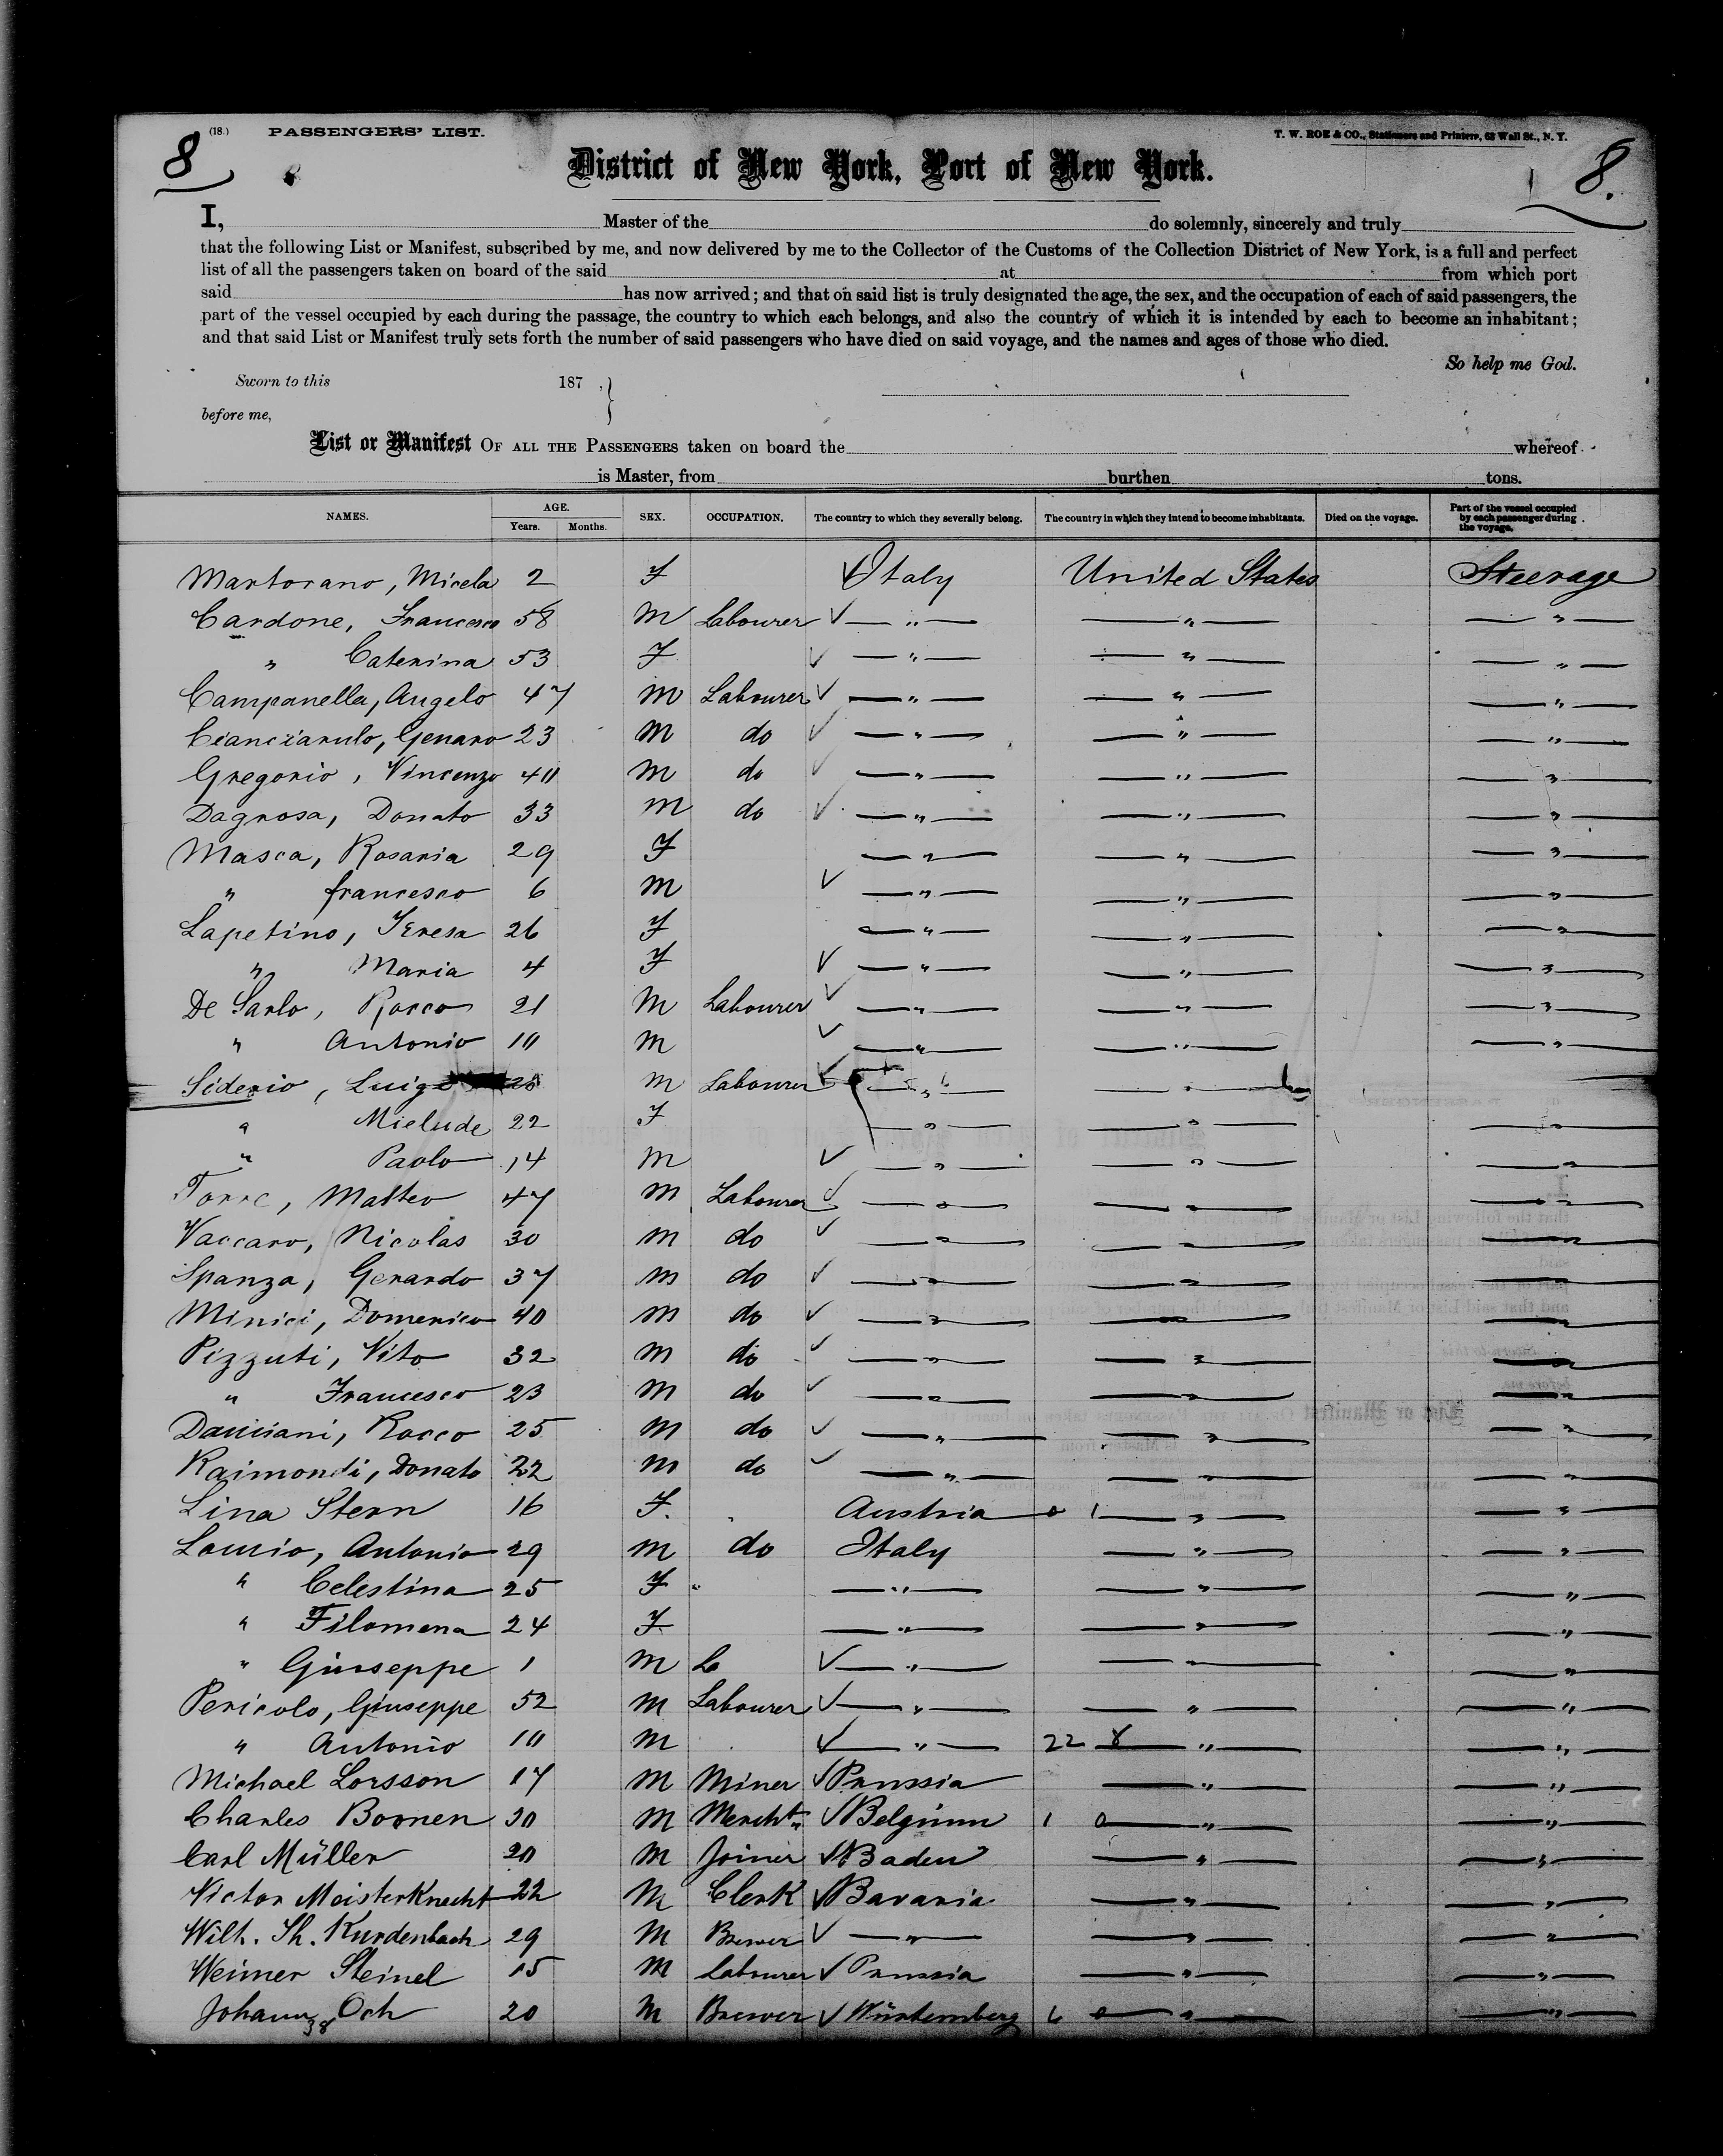 8 (18.) PASSENGERS' LIST. T. W. ROE & CO., Stationers and Printers, 63 Wall St., N. Y. 8.
District of New York, Port of New York.
I, Master of the do solemnly, sincerely and truly
that the following List or Manifest, subscribed by me, and now delivered by me to the Collector of the Customs of the Collection District of New York, is a full and perfect
list of all the passengers taken on board of the said at from which port
said has now arrived; and that on said list is truly designated the age, the sex, and the occupation of each of said passengers, the
part of the vessel occupied by each during the passage, the country to which each belongs, and also the country of which it is intended by each to become an inhabitant;
and that said List or Manifest truly sets forth the number of said passengers who have died on said voyage, and the names and ages of those who died.
So help me God.
Sworn to this 187 ,
before me,
List or Manifest OF ALL THE PASSENGERS taken on board the whereof
is Master, from burthen tons.
NAMES. AGE. Years. Months. SEX. OCCUPATION. The country to which they severally belong. The country in which they intend to become inhabitants. Died on the voyage. Part of the vessel occupied by each passenger during the voyage.
Martorano, Micela 2 F ✓ Italy United States Steerage
Cardone, Francesco 58 M Labourer ✓ — " — — " — — " —
" Caterina 53 F ✓ — " — — " — — " —
Campanella, Angelo 47 M Labourer ✓ — " — — " — — " —
Cianciarulo, Genaro 23 M do ✓ — " — — " — — " —
Gregorio, Vincenzo 40 M do ✓ — " — — " — — " —
Dagrosa, Donato 33 M do ✓ — " — — " — — " —
Masca, Rosaria 29 F — " — — " — — " —
" francesco 6 M ✓ — " — — " — — " —
Lapetino, Teresa 26 F — " — — " — — " —
" Maria 4 F ✓ — " — — " — — " —
De Sarlo, Rocco 21 M Labourer ✓ — " — — " — — " —
" Antonio 10 M ✓ — " — — " — — " —
Siderio, Luigi M Labourer ✓ — " — — " — — " —
" Mielude 22 F — " — — " — — " —
" Paolo 14 M ✓ — " — — " — — " —
Torre, Matteo 47 M Labourer ✓ — " — — " — — " —
Vaccaro, Nicolas 30 M do ✓ — " — — " — — " —
Spanza, Gerardo 37 M do ✓ — " — — " — — " —
Minici, Domenico 40 M do ✓ — " — — " — — " —
Pizzuti, Vito 32 M do ✓ — " — — " — — " —
" Francesco 23 M do ✓ — " — — " — — " —
Damiani, Rocco 25 M do ✓ — " — — " — — " —
Raimondi, Donato 22 M do ✓ — " — — " — — " —
Lina Stern 16 F. Austria 0 1 — " — — " —
Antonio 29 M do Italy — " — — " —
" Celestina 25 F — " — — " — — " —
" Filomena 24 F — " — — " — — " —
" Giuseppe 1 M ✓ — " — — " — — " —
Pericolo, Giuseppe 52 M Labourer ✓ — " — — " — — " —
" Antonio 10 M ✓ — " — 22 8 — " — — " —
Michael Lorsson 17 M Miner ✓ Prussia — " — — " —
Charles Boonen 30 M Mercht. ✓ Belgium 1 0 — " — — " —
Carl Müller 20 M Joiner ✓ Baden — " — — " —
Victor Meisterknecht 22 M Clerk ✓ Bavaria — " — — " —
Wilh. Th. Kurdenbach 29 M Brewer ✓ — " — — " — — " —
Weimer Steinel 15 M Labourer ✓ Prussia — " — — " —
Johann Och 20 M Brewer ✓ Würtemberg 6 0 — " — — " —
38